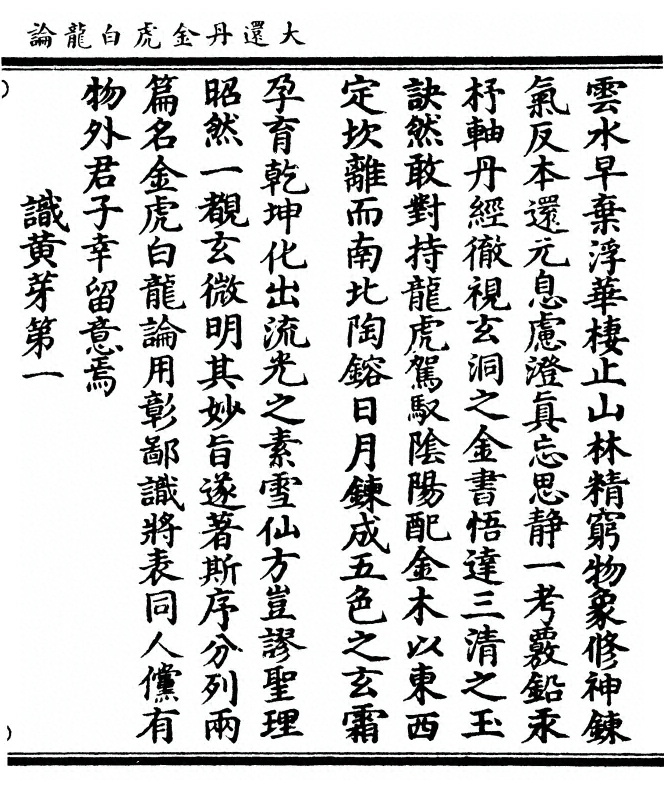 大還丹金虎白龍論
雲水早棄浮華棲止山林精窮物象修神鍊
氣反本還元息慮澄真忘思静一考覈鉛汞
杼軸丹經徹視玄洞之金書悟達三清之玉
訣然敢對持龍虎駕馭陰陽配金木以東西
定坎離而南北陶鎔日月鍊成五色之玄霜
孕育乾坤化出流光之素雪仙方豈謬聖理
昭然一覩玄微明其妙旨遂著斯序分列兩
篇名金虎白龍論用彰鄙識將表同人儻有
物外君子幸留意焉
識黄芽第一